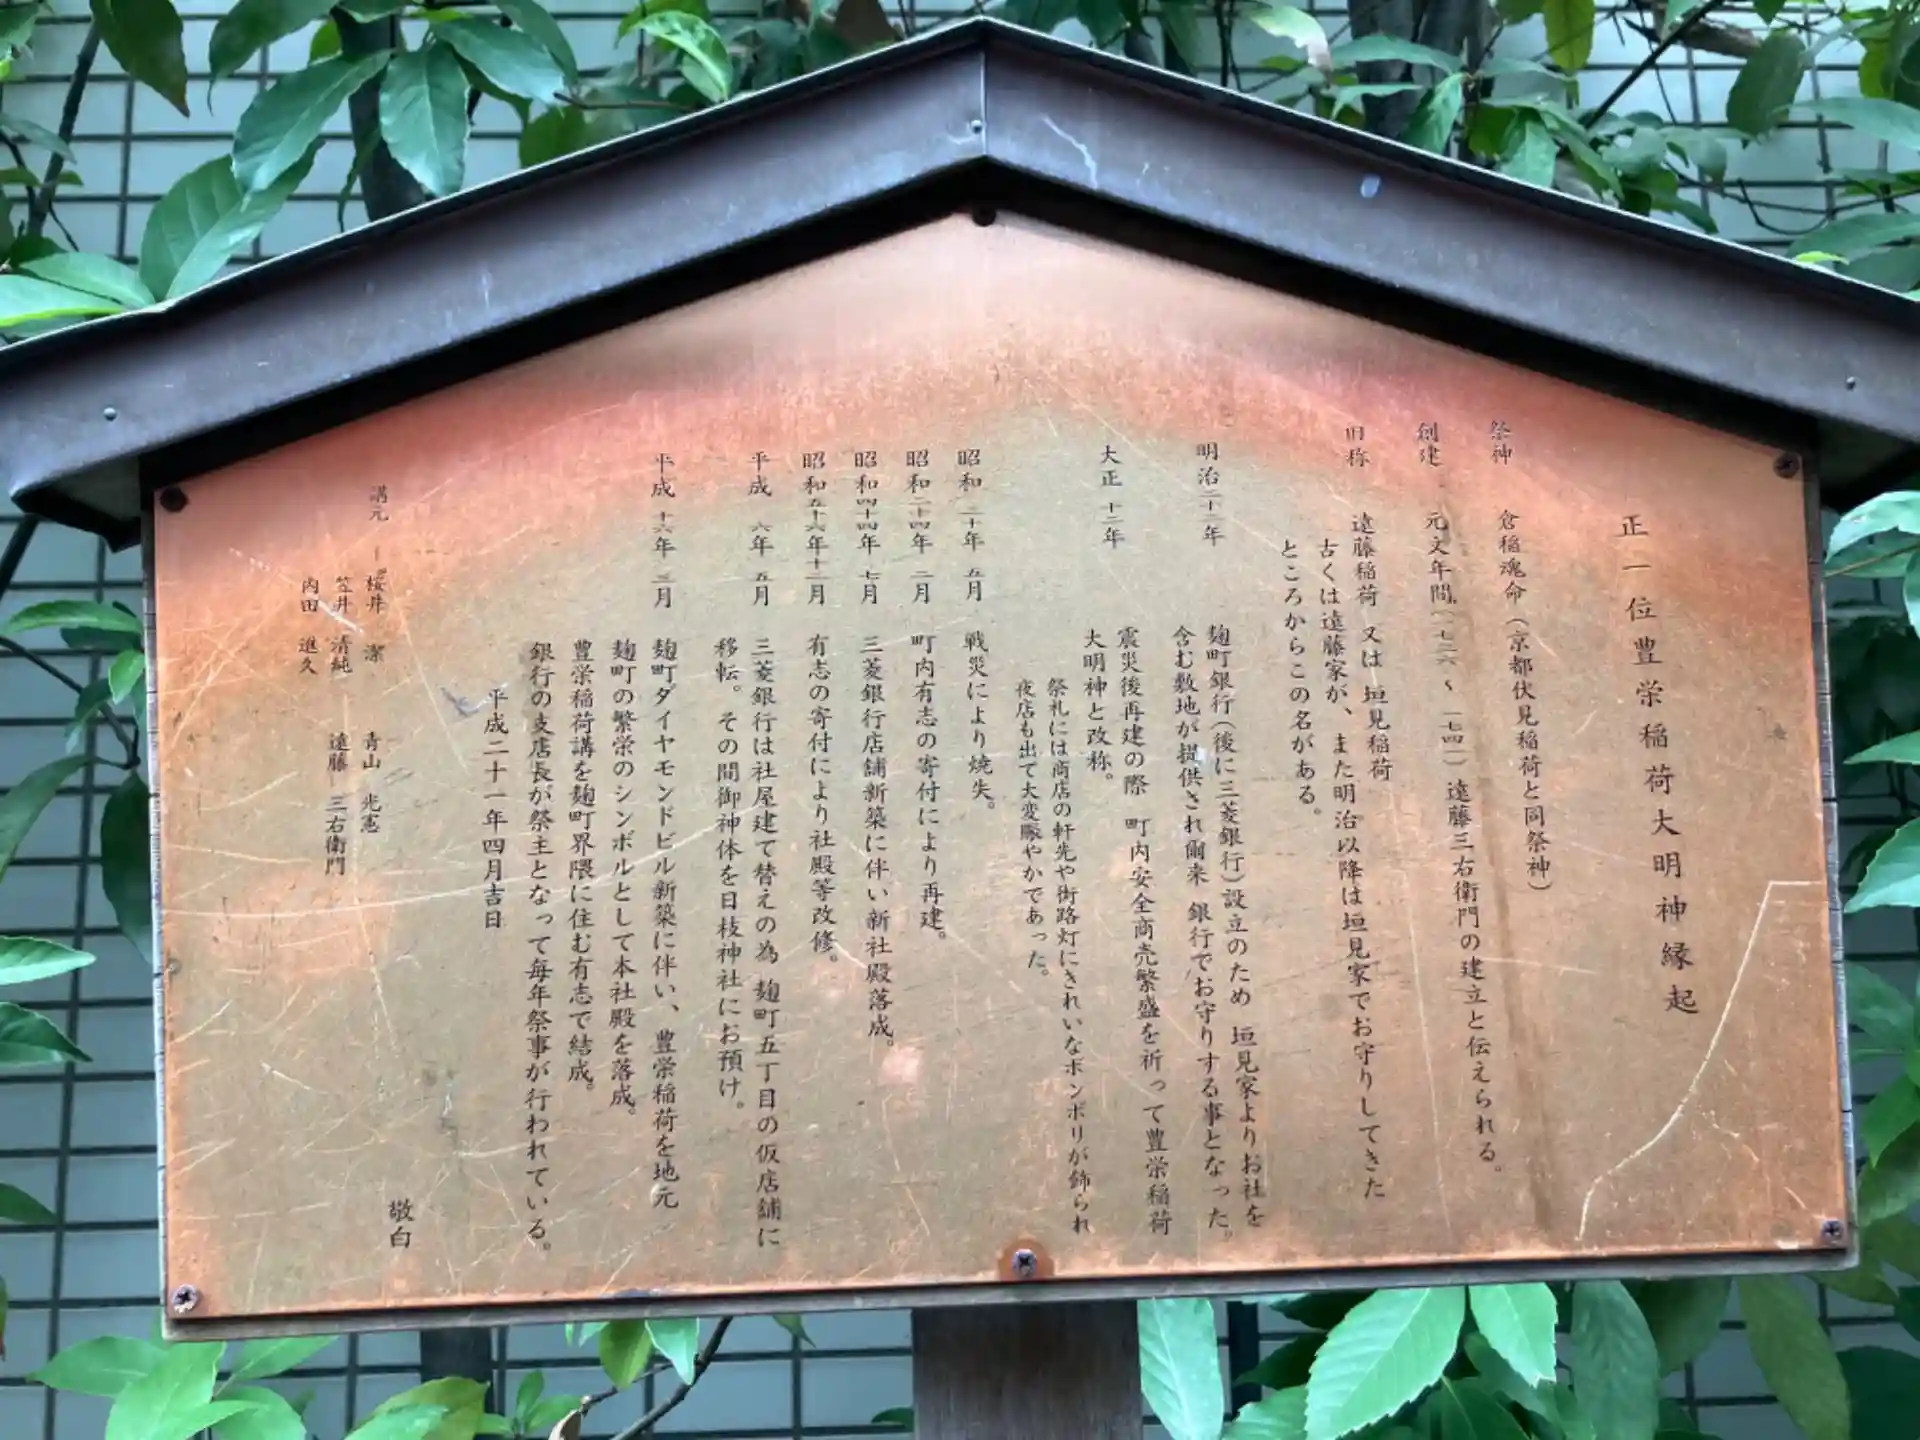 正一位豊栄稲荷大明神縁起
祭神 倉稲魂命（京都伏見稲荷と同祭神）
創建 元文年間（一七三六～一七四一）遠藤三右衛門の建立と伝えられる。
旧称 遠藤稲荷 又は 垣見稲荷
古くは遠藤家が、また明治以降は垣見家でお守りしてきた
ところからこの名がある。
明治二十二年 麹町銀行（後に三菱銀行）設立のため 垣見家よりお社を
含む敷地が提供され爾来 銀行でお守りする事となった。
大正 十二年 震災後再建の際 町内安全商売繁盛を祈って豊栄稲荷
大明神と改称。
祭礼には商店の軒先や街路灯にきれいなボンボリが飾られ
夜店も出て大変賑やかであった。
昭和 二十年 五月 戦災により焼失。
昭和二十四年 二月 町内有志の寄付により再建。
昭和四十四年 七月 三菱銀行店舗新築に伴い新社殿落成。
昭和五十六年十二月 有志の寄付により社殿等改修。
平成 六年 五月 三菱銀行は社屋建て替えの為 麹町五丁目の仮店舗に
移転。その間御神体を日枝神社にお預け。
平成 十六年 三月 麹町ダイヤモンドビル新築に伴い、豊栄稲荷を地元
麹町の繁栄のシンボルとして本社殿を落成。
豊栄稲荷講を麹町界隈に住む有志で結成。
銀行の支店長が祭主となって毎年祭事が行われている。
平成二十一年四月吉日
敬白
講元 桜井 潔 青山 光憲
笠井 清純 遠藤 三右衛門
内田 進久